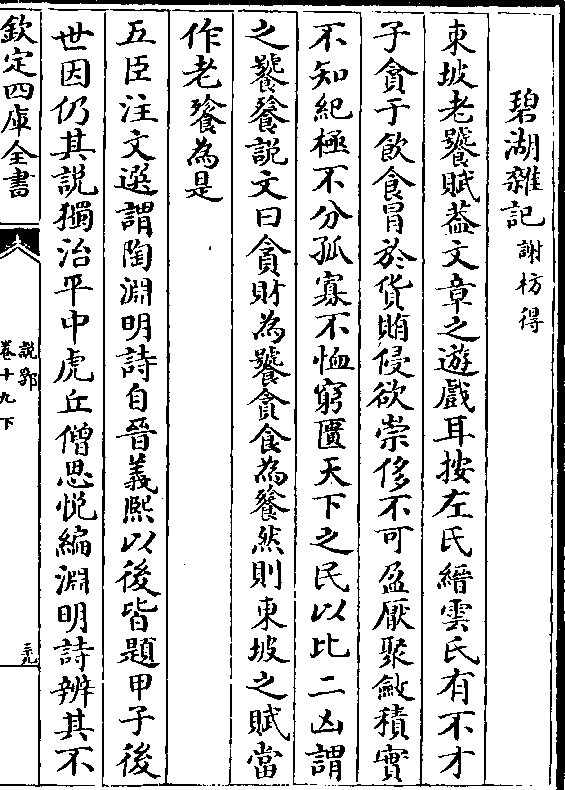 碧湖雜記 謝枋得
東坡老饕賦葢文章之遊戲耳按左氏縉雲氏有不才
子貪于飲食冒於貨賄侵欲崇侈不可盈厭聚斂積實
不知紀極不分孤寡不恤窮匱天下之民以比二凶謂
之饕餮説文曰貪財為饕貪食為餮然則東坡之賦當
作老餮為是
五臣注文選謂陶淵明詩自晉義熙以後皆題甲子後
世因仍其説獨治平中虎丘僧思悦編淵明詩辨其不
欽定四庫全書
説郛
卷十九下
三九